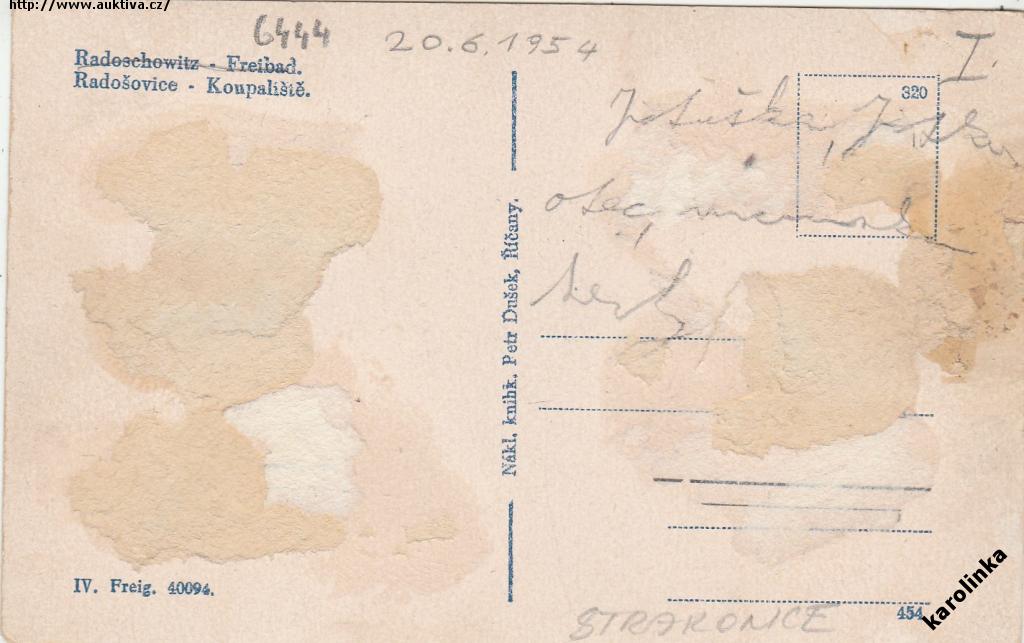 http://www.auktiva.cz/
6444
20.6.1954
I.
Radoschowitz - Freibad.
Radošovice - Koupaliště.
320
otec
Nákl. knihk. Petr Dušek, Říčany.
IV. Freig. 40094.
454
STRAKONICE
karolinka